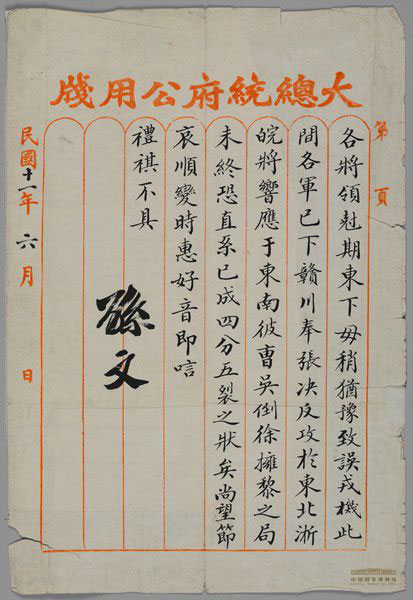 大總統府公用牋
第 頁
各將領尅期東下毋稍猶豫致誤戎機此
間各軍已下贛川奉張決反攻於東北浙
皖將響應于東南彼曹吳倒徐擁黎之局
未終恐直系已成四分五裂之狀矣尚望節
哀順變時惠好音即唁
禮祺不具
孫文
民國十一年六月 日
中国国家博物馆